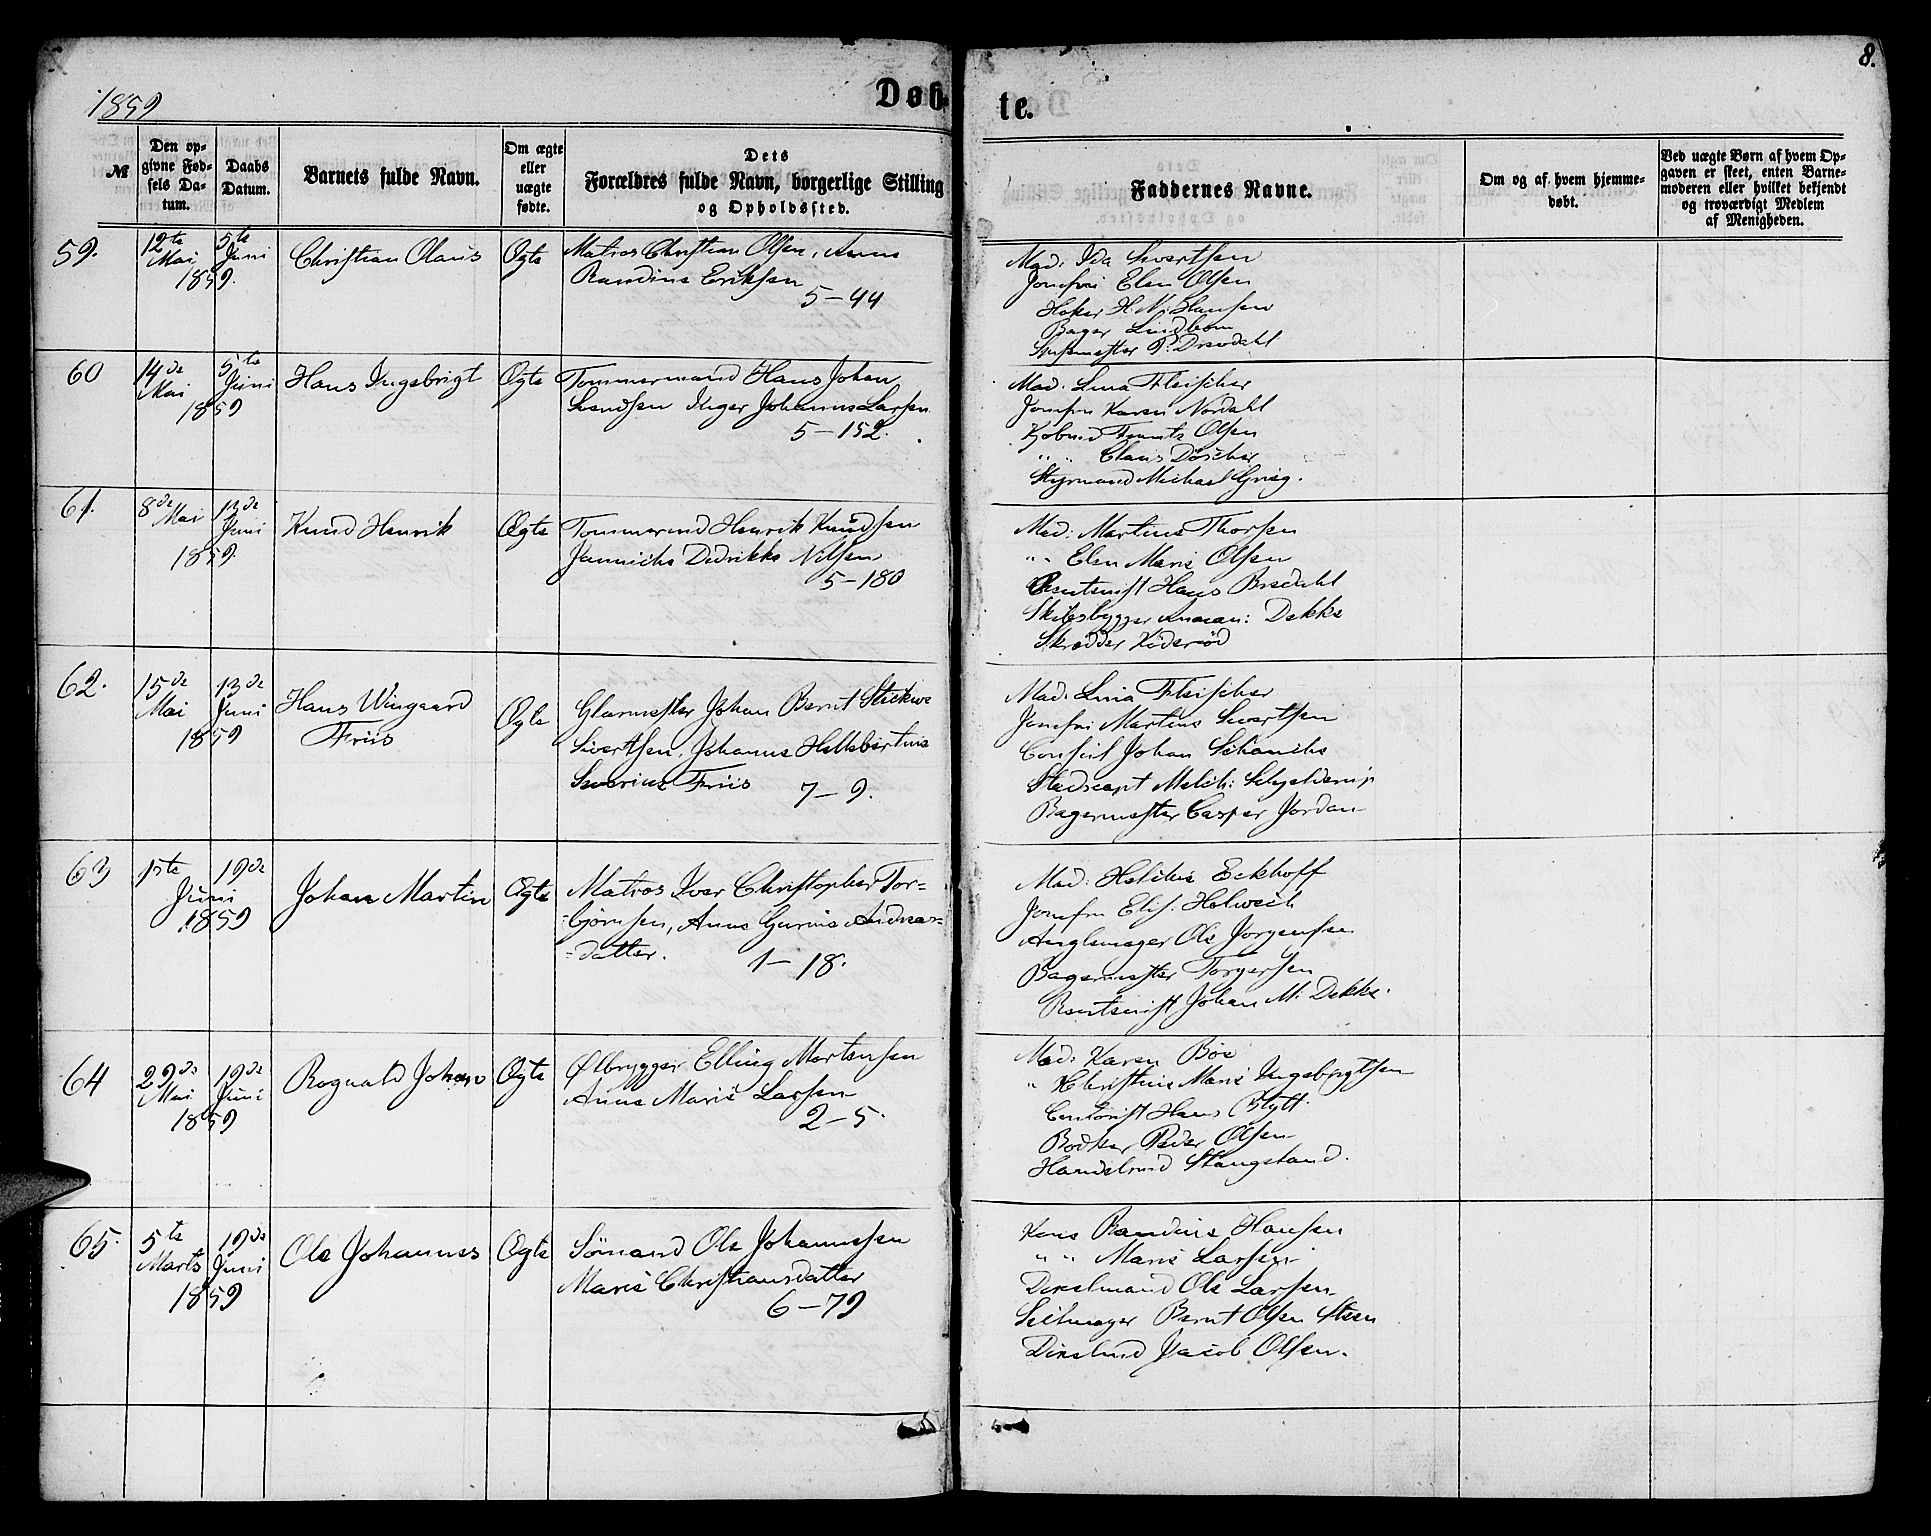 8.
1859
Døb-
te.
№
Den op-
givne Fød-
sels Da-
tum.
Daabs
Datum.
Barnets fulde Navn.
Om ægte
eller
uægte
fødte.
Dets
Forældres fulde Navn, borgerlige Stilling
og Opholdssted.
Faddernes Navne.
Om og af hvem hjemme-
døbt.
Ved uægte Børn af hvem Op-
gaven er skeet, enten Barne-
moderen eller hvilket bekjendt
og troværdigt Medlem
af Menigheden.
59.
12te Mai
1859
5te Juni
Christian Olaus
Ægte
Matros Christian Olsen, Anne
Randine Eriksen
5-44
Mad: Ida Sivertsen
Jomfru Elen Olsen
Høker H. N. Hansen
Bager Lindbom
P. Drevdahl
60
14de Mai
1859
5te Juni
Hans Ingebrigt
Ægte
Tømmermand Hans Johan
Svendsen Inger Johanne Larsen
5-152.
Mad. Lina Fleischer
Jomfru Karen Nordahl
Kjøbmd Frants Olsen
" " Claus Döscher
Styrmand Michael Grieg.
61.
8de Mai
1859
13de Juni
Knud Henrik
Ægte
Tømmermd Henrik Knudsen
Jannicke Didrikke Nilsen
5-180
Mad: Martine Thorsen
" " Elen Marie Olsen
Hans Bredahl
Skibsbygger Annan: Dekke
Skrædder
62.
15de Mai
1859
13de Juni
Hans Wingaard
Friis
Ægte
Glarmester Johan Bernt
Sivertsen, Johanne Hellebertine
Severine Friis
7-9.
Mad. Lina Fleischer
Jomfru Martine Sivertsen
Consul Johan Schancke
Stadscapt Melch: Schjelderup
Bagermester Casper Jordan
63
1ste Juni
1859
19de
Johan Martin
Ægte
Matros Iver Christopher Tor-
=bjørnsen, Anne Gurine Andreas=
=datter.
1-18.
Mad: Eckhoff
Jomfru Elis. Helwich
Ole Jørgensen
Bagermester Torgersen
Johan M. Dekke.
64
29de Mai
1859
19de Juni
Rognald Johan
Ægte
Ølbrygger Elling Mortensen
Anne Marie Larsen
2-5.
Mad: Karen Böe
" Christine Marie Ingebrigtsen
Hans Blytt.
Bødker Peder Olsen
Handelsmd Stangeland.
65.
5te Marts
1859
19de Juni
Ole Johannes
Ægte
Sømand Ole Johannessen
Marie Christiansdatter
6-79
Kone Randine Hansen
" " Marie Larsen
Ole Larsen
Seilmager Bernt Olsen Steen
Jacob Olsen.